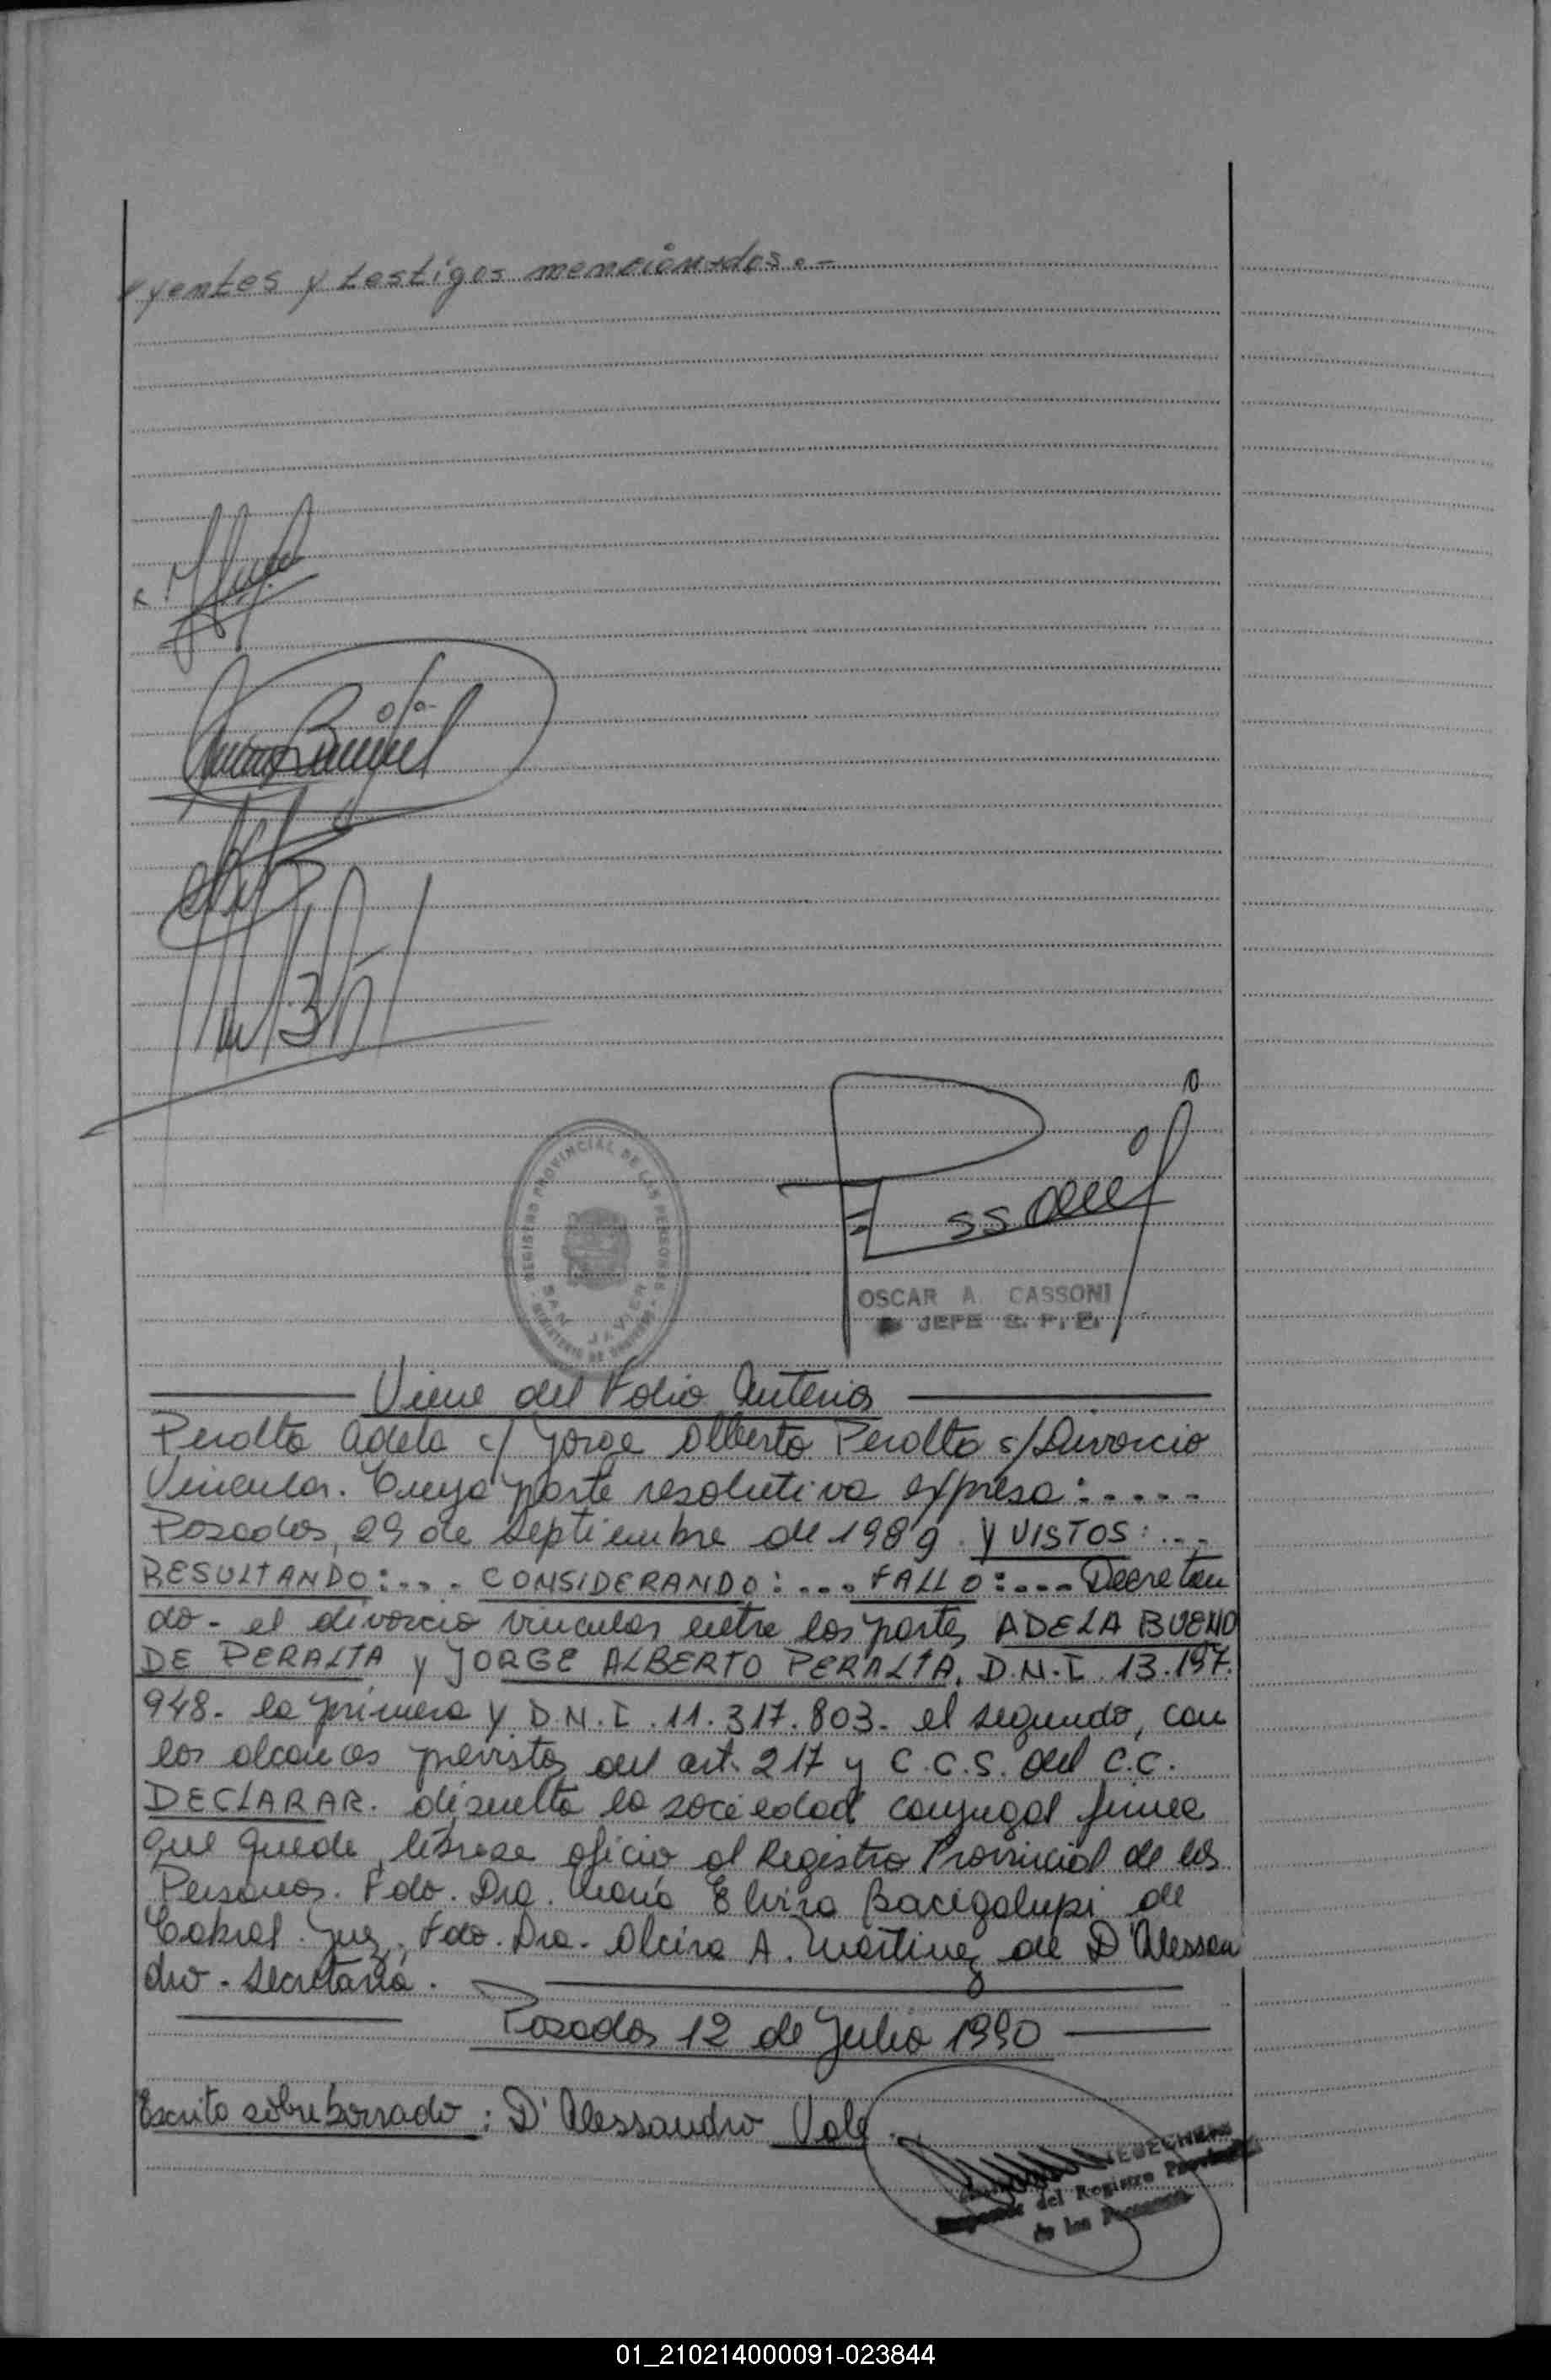 yentes y testigos mencionados.-
REGISTRO PROVINCIAL DE LAS PERSONAS
SAN JAVIER
OSCAR A. CASSONI
JEFE
Viene del Folio Anterior
Peralta Adela c/ Jorge Alberto Peralta s/Divorcio
Vincular. Cuya parte resolutiva expresa:.....
Posadas, 29 de Septiembre de 1989. Y VISTOS:...
RESULTANDO:... CONSIDERANDO:... FALLO:... Decretan
do- el divorcio vincular entre las partes ADELA BUENO
DE PERALTA y JORGE ALBERTO PERALTA, D.N.I. 13.197.
948- la primera y D.N.I. 11.317.803- el segundo, con
los alcances previstos del art. 217 y C.C.S. del C.C.
DECLARAR. disuelta la sociedad conyugal firme
que quede, líbrese oficio al Registro Provincial de las
Personas. Fdo. Dra. María Elvira Bacigalupi de
Cabral. Juez, Fdo. Dra. Alcira A. Martinez de D'Alessan
dro - Secretaria.
Posadas 12 de Julio 1990
Escrito sobre borrado: D'Alessandro Vale.
del Registro Provincial
de las Personas
01_210214000091-023844